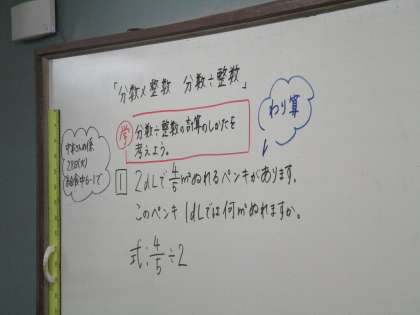 「分数×整数 分数÷整数」
学
分数÷整数の計算のしかたを
考えよう。
わり算
1
2dLで4/5m²ぬれるペンキがあります。
このペンキ1dLでは何m²ぬれますか。
式:4/5÷2